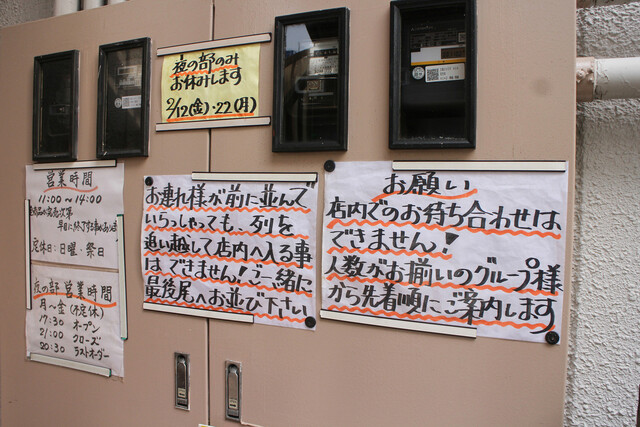 夜の部のみ
お休みします
2/12(金)・22(月)
営業時間
11:00〜14:00
定休日:日曜・祭日
夜の部 営業時間
月〜金(不定休)
17:30 オープン
21:00 クローズ
20:30 ラストオーダー
お連れ様が前に並んで
いらっしゃっても、列を
追い越して店内へ入る事
は できません!ご一緒に
最後尾へお並び下さい
お願い
店内でのお待ち合わせは
できません!
人数がお揃いのグループ様
から先着順にご案内します